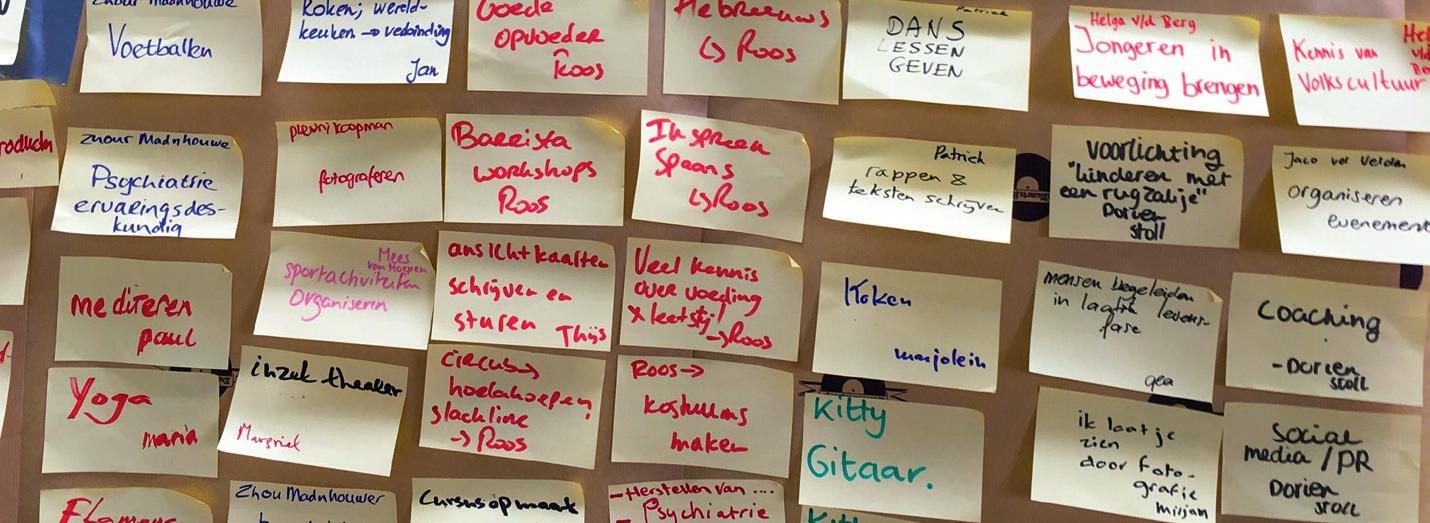 Zhour Madnhouwe
Voetballen
Koken; wereld-
keuken → verbinding
Jan
Goede
opvoeder
Roos
Hebreeuws
↳ Roos
Patrick
DANS
LESSEN
GEVEN
Helga v/d Berg
Jongeren in
beweging brengen
Kennis van
Volkscultuur
Zhour Madnhouwe
Psychiatrie
ervaringsdes-
kundig
pleuni koopman
fotograferen
Barista
workshops
Roos
Inspreen
Spaans
↳ Roos
Patrick
rappen &
teksten schrijven
voorlichting
"kinderen met
een rugzakje"
Dorien
stoll
Jaco vd Velden
organiseren
evenement
mediteren
paul
Mees
sportachviteiten
Organiseren
ansichtkaarten
schrijven en
sturen Thijs
Veel kennis
over voeding
& leefstijl
→ Roos
Koken
marjolein
mensen begeleiden
in laatste levens-
fase
gea
Coaching
- Dorien
stoll
Yoga
maria
inzet theater
Margriet
Circus →
hoelahoepen,
slackline
→ Roos
Roos →
kostuums
maken
Kitty
Gitaar.
ik laat je
zien
door foto-
grafie
mirjam
Social
media / PR
Dorien
stoll
Zhou Madnhouwer
Cursusopmaak
- Herstellen van ....
Psychiatrie
Kitty